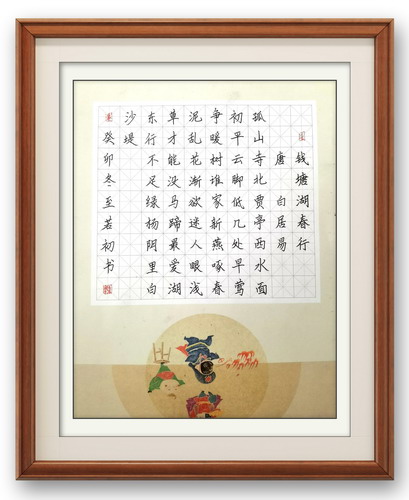 钱塘湖春行
唐 白居易
孤山寺北贾亭西水面
初平云脚低几处早莺
争暖树谁家新燕啄春
泥乱花渐欲迷人眼浅
草才能没马蹄最爱湖
东行不足绿杨阴里白
沙堤
癸卯冬至若初书